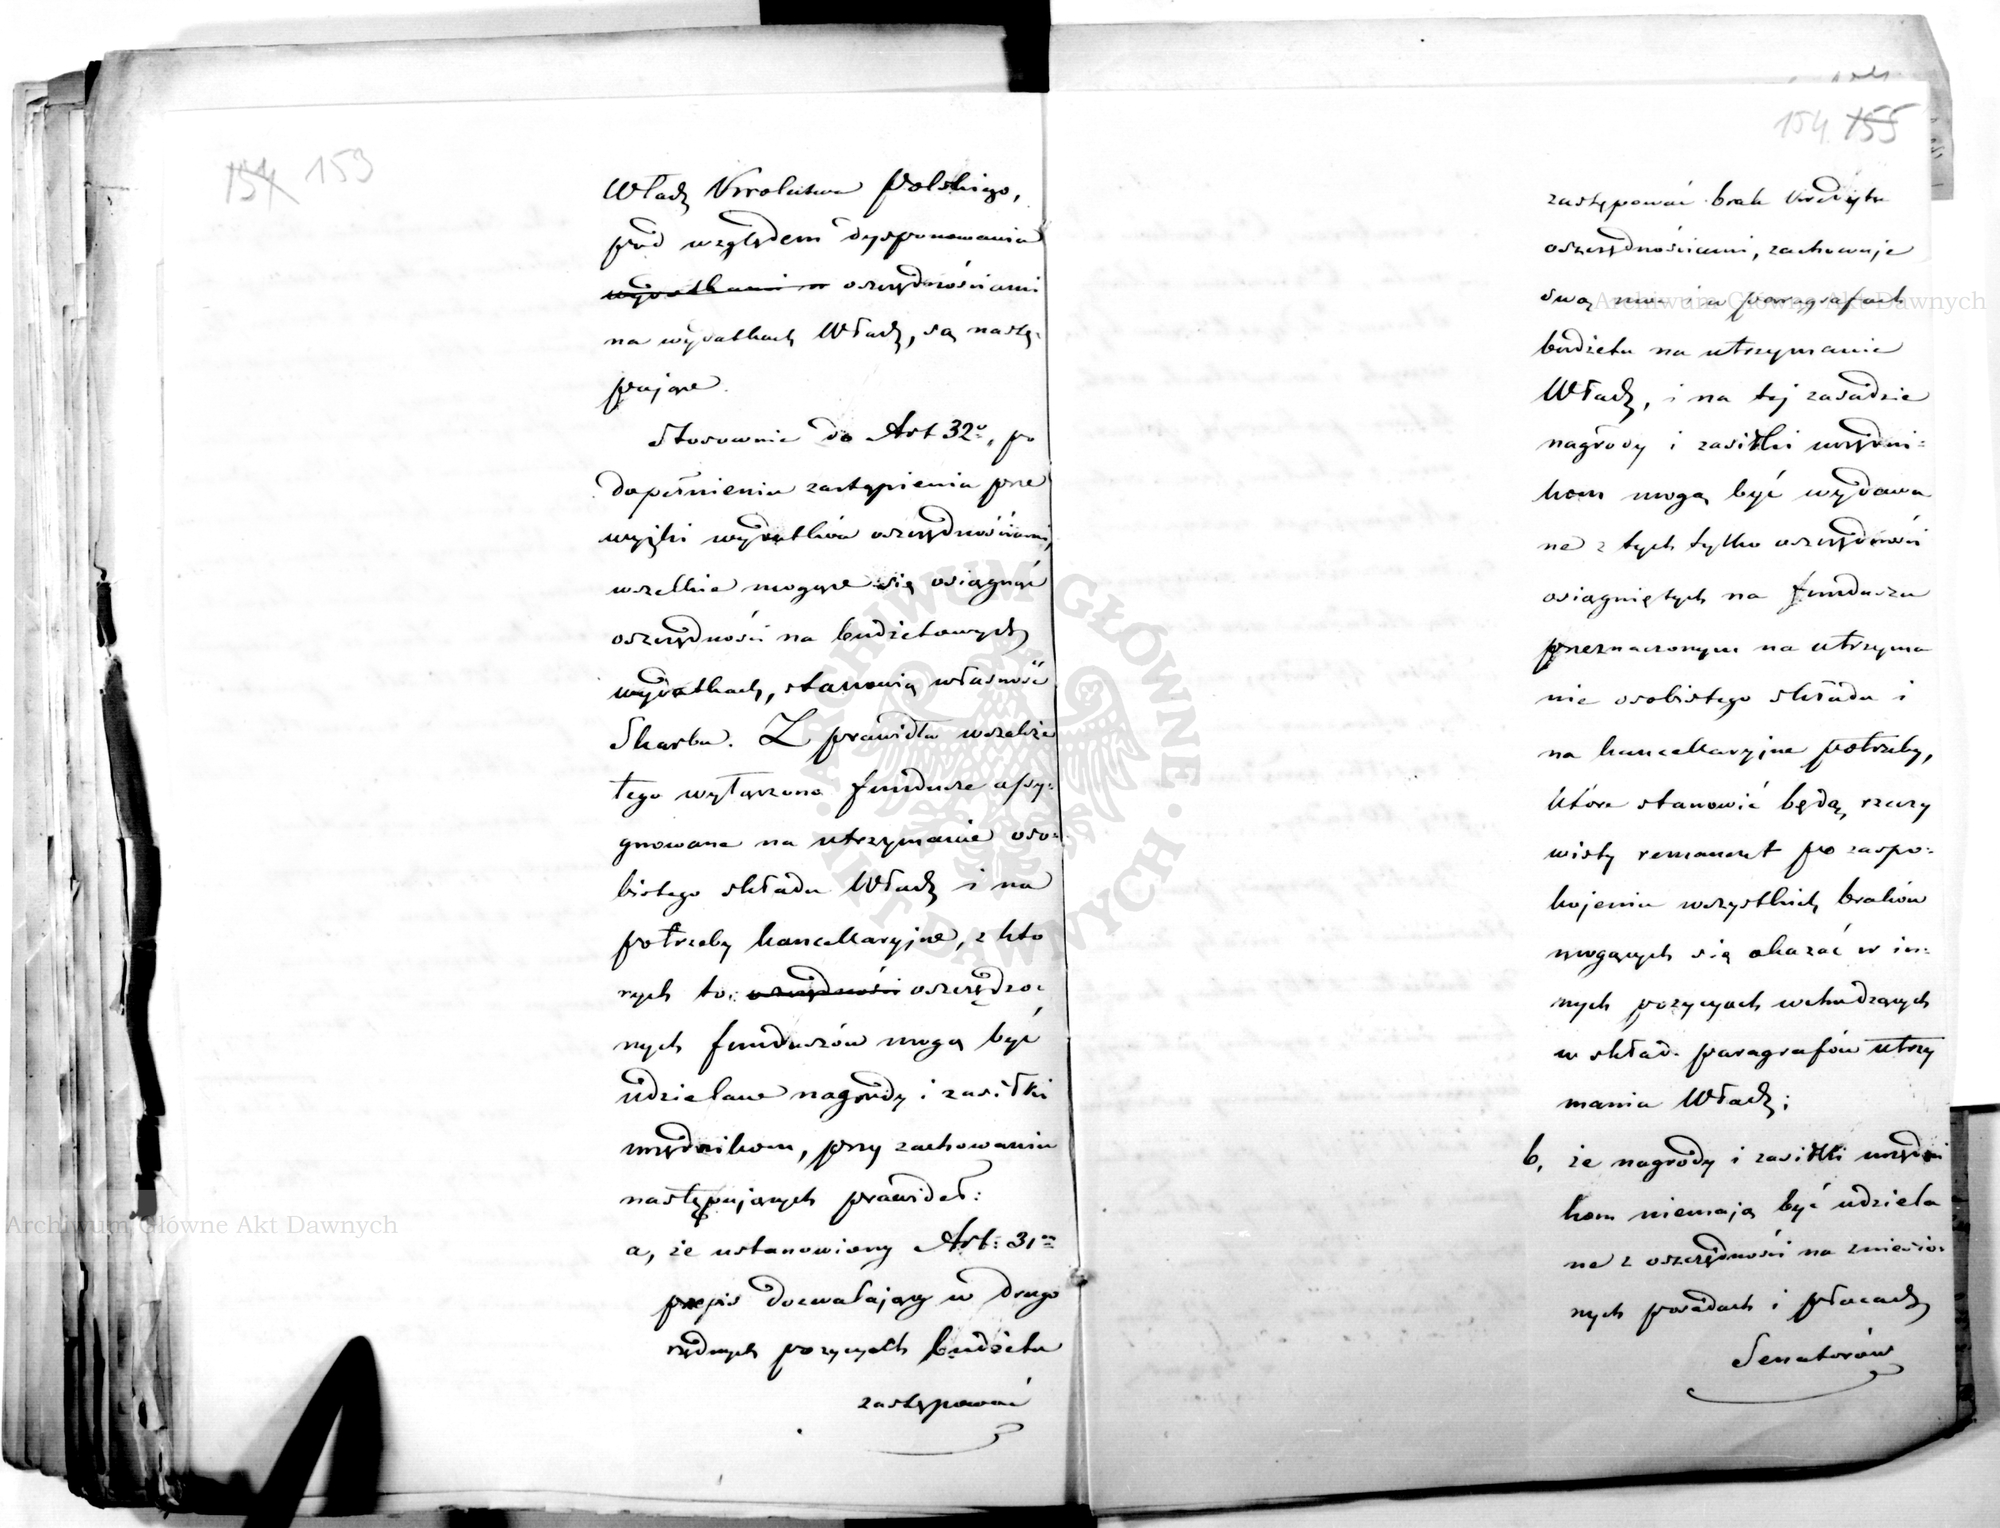 154 153
Władz Królestwa Polskiego,
pod względem dysponowania
wydatkami w oszczędnościami
na wydatkach Władz, są nastę-
pujące.
Stosownie do Art 32º, po
dopełnieniu zastąpienia prze
wyżki wydatków oszczędnościami,
wszelkie mogące się osiągnąć
oszczędności na budżetowych
wydatkach, stanowią własność
Skarbu. Z prawidła wszakże
tego wyłączone fundusze assy-
gnowane na utrzymanie oso-
bistego składu Władz i na
potrzeby kancellaryjne, z któ
rych to: oszczędności oszczędzo
nych funduszów mogą być
udzielane nagrody i zasiłki
urzędnikom, przy zachowaniu
następujących prawideł:
a, że ustanowiony Art: 31m
przepis dozwalający w drugo
rzędnych pozycyach budżetu
zastępować
154. 155
zastępować brak kredytu
oszczędnościami, zachowuje
swą moc i w paragrafach
budżetu na utrzymanie
Władz, i na tej zasadzie
nagrody i zasiłki urzędni=
kom mogą być wydawa
ne z tych tylko oszczędności
osiągniętych na funduszu
przeznaczonym na utrzyma
nie osobistego składu i
na kancellaryjne potrzeby,
które stanowić będą rzeczy
wisty remanent po zaspo=
kojeniu wszystkich braków
mogących się okazać w in=
nych pozycyach wchodzących
w skład paragrafów utrzy
mania Władz;
b, że nagrody i zasiłki urzędni
kom niemają być udziela
ne z oszczędności na zniesio=
nych posadach i płacach
Senatorów
Archiwum Główne Akt Dawnych
Archiwum Główne Akt Dawnych
ARCHIWUM GŁÓWNE AKT DAWNYCH